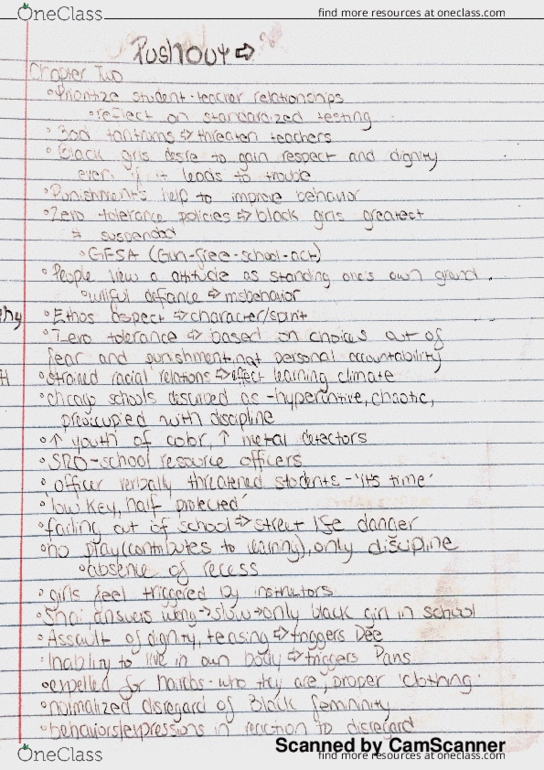 OneClass
find more resources at oneclass.com
Pushout ⇨
Chapter Two
°Prioritize student-teacher relationships
°reflect on standardized testing
°Bad tantrums ⇨ threaten teachers
°Black girls desire to gain respect and dignity
even if it leads to trouble
°Punishments help to improve behavior
°Zero tolerance policies ⇨ black girls greatest
# suspended
°GFSA (Gun-free-school-act)
°People view a attitude as standing one's own ground.
°willful defiance ⇨ misbehavior
°Ethos aspect ⇨ character/spirit
°Zero tolerance ⇨ based on choices out of
fear and punishment, not personal accountability
°strained racial relations ⇨ effect learning climate
°chicago schools described as -hyperpunitive, chaotic,
preoccupied with discipline
°↑ youth of color, ↑ metal detectors
°SRO-school resource officers
°officer verbally threatened students -'its time'
°'low key, half protected'
°falling out of school ⇨ street life danger
°no play (contributes to learning), only discipline
°absence of recess
°girls feel triggered by instructors
°Shai answers wrong → slow → only black girl in school
°Assault of dignity, teasing ⇨ triggers Dee
°Inability to live in own body ⇨ triggers Paris
°expelled for hairdos - who they are, proper 'clothing'
°normalized disregard of Black femininity
°behaviors/expressions in reaction to disregard
Scanned by CamScanner
OneClass
find more resources at oneclass.com